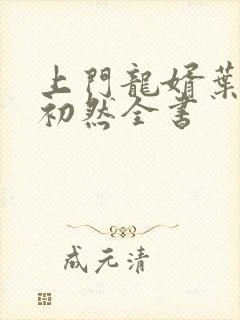 上門龍婿葉
初然全書
成元清